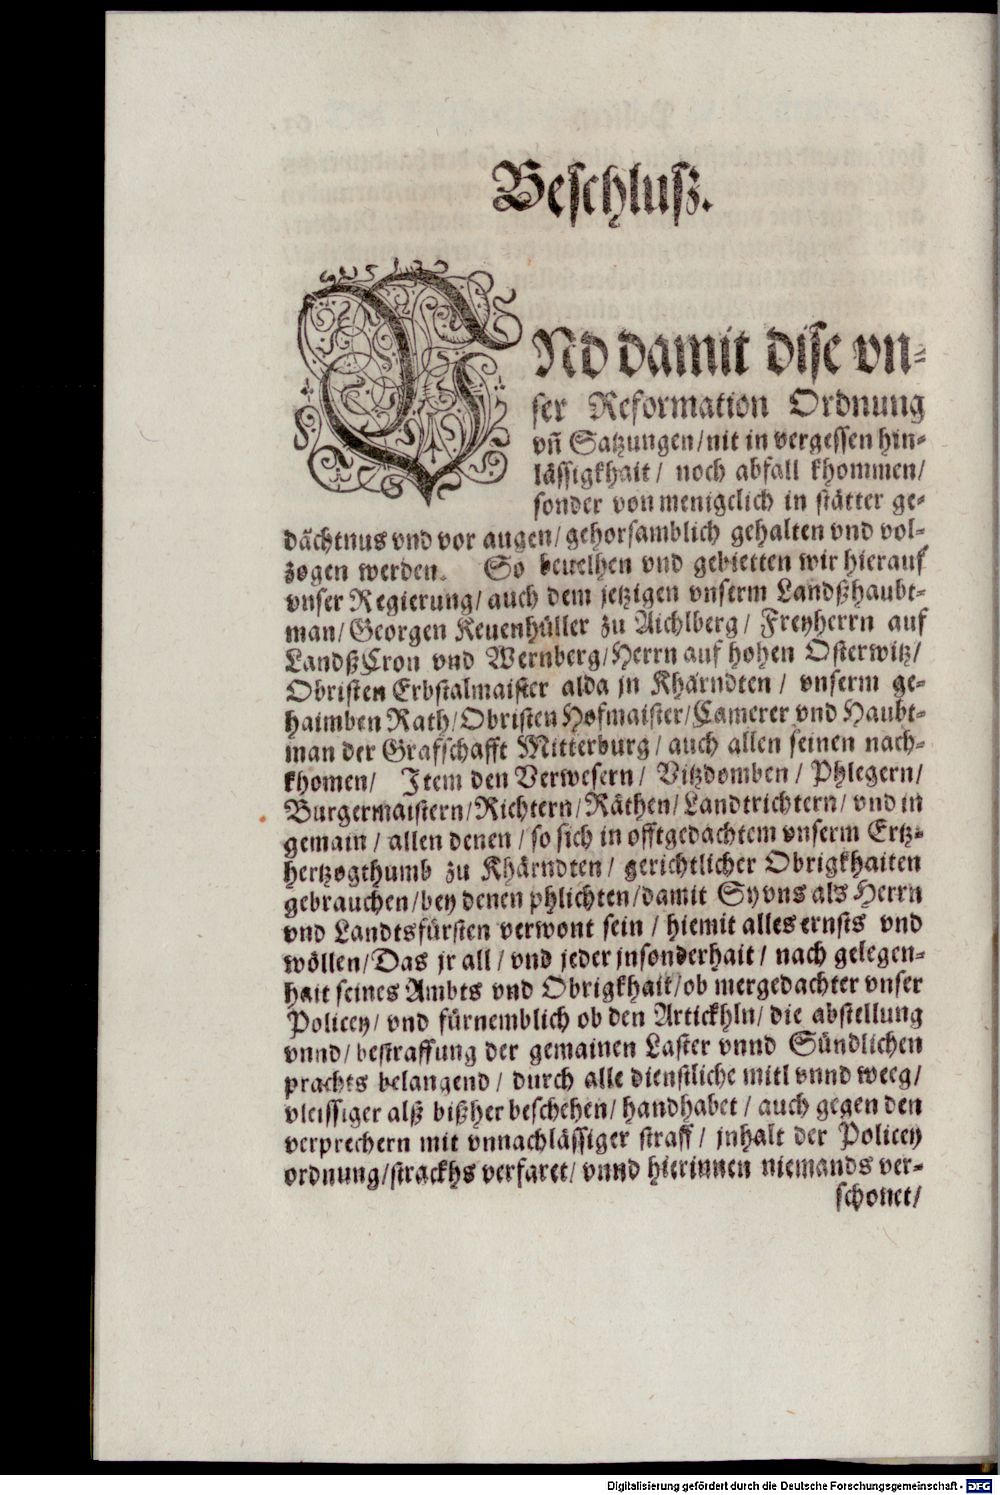 Beschluß.
VNd damit dise vn-
ser Reformation Ordnung
vñ Satzungen/nit in vergessen hin-
lässigkhait/ noch abfall khommen/
sonder von menigelich in stätter ge-
dächtnus vnd vor augen/gehorsamblich gehalten vnd vol-
zogen werden. So beuelhen vnd gebietten wir hierauf
vnser Regierung/ auch dem jetzigen vnserm Landßhaubt-
man/Georgen Keuenhüller zu Aichlberg/ Freyherrn auf
LandßCron vnd Wernberg/Herrn auf hohen Osterwitz/
Obristen Erbstalmaister alda jn Khärndten/ vnserm ge-
haimben Rath/Obristen Hofmaister/Camerer vnd Haubt-
man der Grafschafft Mitterburg/auch allen seinen nach-
khomen/ Item den Verwesern/ Vitzdomben/ Phlegern/
Burgermaistern/Richtern/Räthen/Landtrichtern/vnd in
gemain/ allen denen/so sich in offtgedachtem vnserm Ertz-
hertzogthumb zu Khärndten/ gerichtlicher Obrigkhaiten
gebrauchen/bey denen phlichten/damit Sy vns als Herrn
vnd Landtsfürsten verwont sein/hiemit alles ernsts vnd
wöllen/Das jr all/vnd jeder jnsonderhait/nach gelegen-
hait seines Ambts vnd Obrigkhait/ob mergedachter vnser
Policey/ vnd fürnemblich ob den Artickhln/ die abstellung
vnnd/bestraffung der gemainen Laster vnnd Sündlichen
prachts belangend/ durch alle dienstliche mitl vnnd weeg/
vleissiger alß bißher beschehen/handhabet/auch gegen den
verprechern mit vnnachlässiger straff/ jnhalt der Policey
ordnung/strackhs verfaret/vnnd hierinnen niemands ver-
schonet/
Digitalisierung gefördert durch die Deutsche Forschungsgemeinschaft - DFG